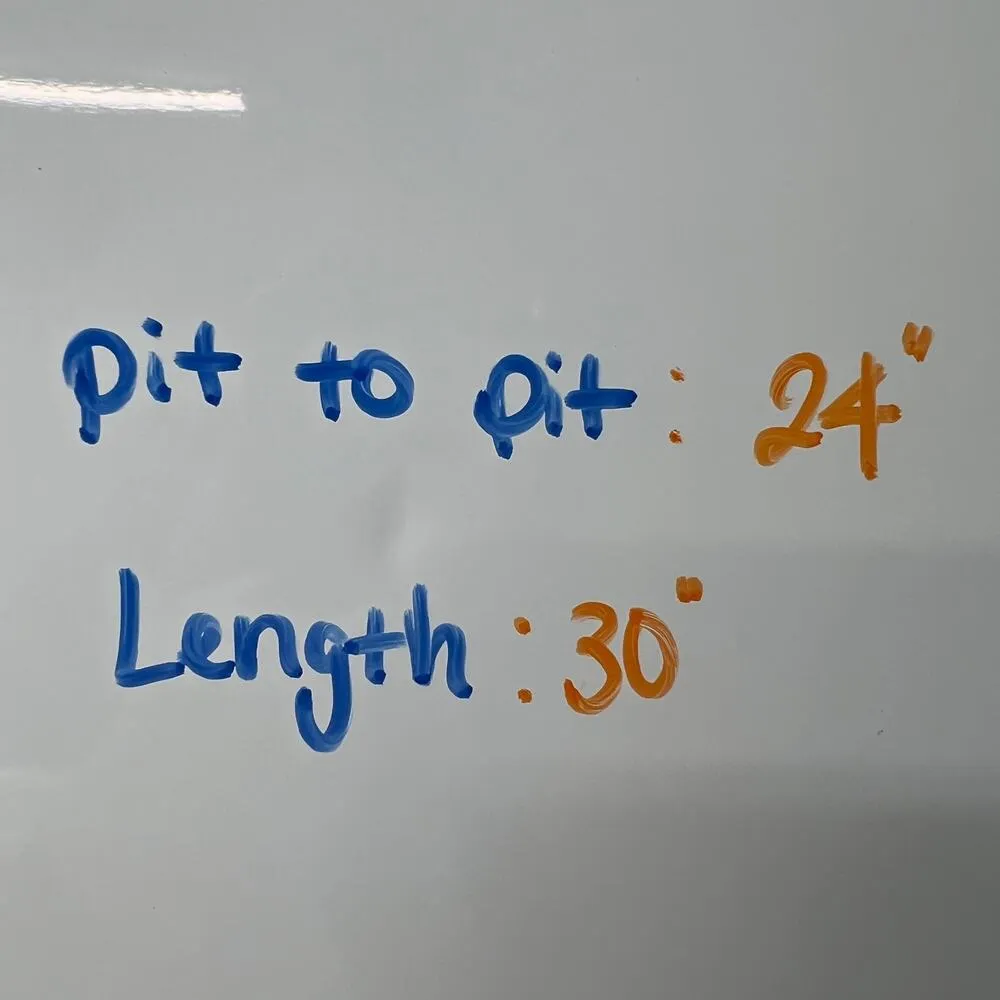 pit to pit : 24"
Length : 30"